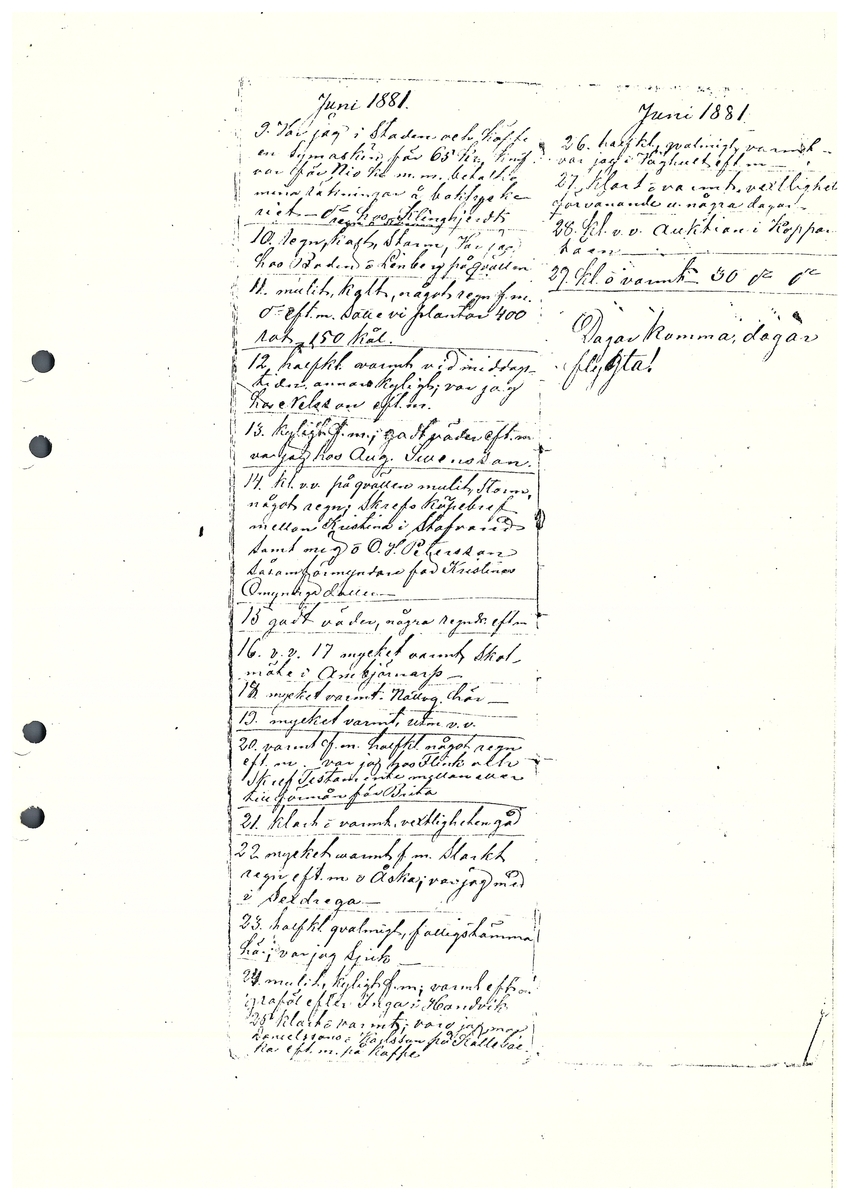 Juni 1881.
9. Var jag i Staden och köpte
en Symaskin för 65 Kr,
var för Nio Kr m.m. betalte
mina räkningar å boktrycke
riet — do hos Klinghjerdts
10. regn, kalt, Storm, Var jag
hos Boden o Lenberg på qvällen
11. mulit, kallt, något regn f.m.
do eft.m. Satte vi plantor 400
rot, 150 kål.
12. halfkl. varmt vid middags-
tiden, annars kyligt; var jag
hos Nelsson eft.m.
13. kyligt f.m.; godt väder eft.m
var jag hos Aug. Svensson.
14. kl. v.v. på qvällen mulit, Storm,
något regn; Skrefs Köpebref
mellan Kristina i Stafvared
samt mig o O. H. Petersson
såsom förmyndare for Kristinas
Omyndiga dotter —
15 godt väder, några regnsk. eftm
16. v.v. 17 mycket varmt, Skol-
möte i Ambjörnarp —
18. mycket varmt. Nattvg. här —
19. mycket varmt, utm v.v.
20. varmt f.m. halfkl något regn
eft.m. var jag hos Flink och
Skref Testamente mellan
till förmån för Brita
21. klart o varmt, vextligheten god
22 mycket varmt f.m. Starkt
regn eft.m o Åska; var jag med
i Sexdrega —
23. halfkl qvalmigt, fattigstämma
här; var jag Sjuk —
24. mulit, kyligt f.m; varmt eft.m
graföl efter Inga i Handvik
25 klart o varmt; jag
Danielssons o Karlsson på
kar eft.m. på kaffe
Juni 1881
26. halfkl, qvalmigt, varmt —
var jag i Häghult eft.m —
27. klart o varmt, vextlighet
förvånande u. några dagar
28. kl. v.v. Auktion i Koppar
29. kl. o varmt 30 do do
Dagar komma, dagar
flygta!